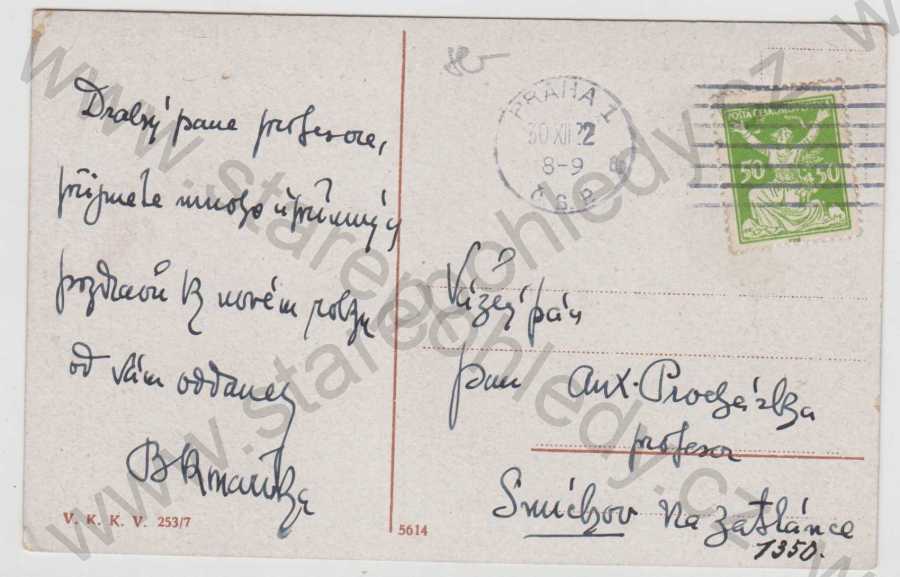 Drahý pane profesore,
přijměte mnoho upřímných
pozdravů k novém roku
od Vám oddané
V. K. K. V. 253/7
5614
PRAHA 1
30 XII 22
8-9
Č.S.P.
POŠTA ČESKOSLOVENSKÁ
50 50
Vážený pán
pan Ant. Procházka
profesor
Smíchov Na Zatlance
1350.
www.stareponledy.cz